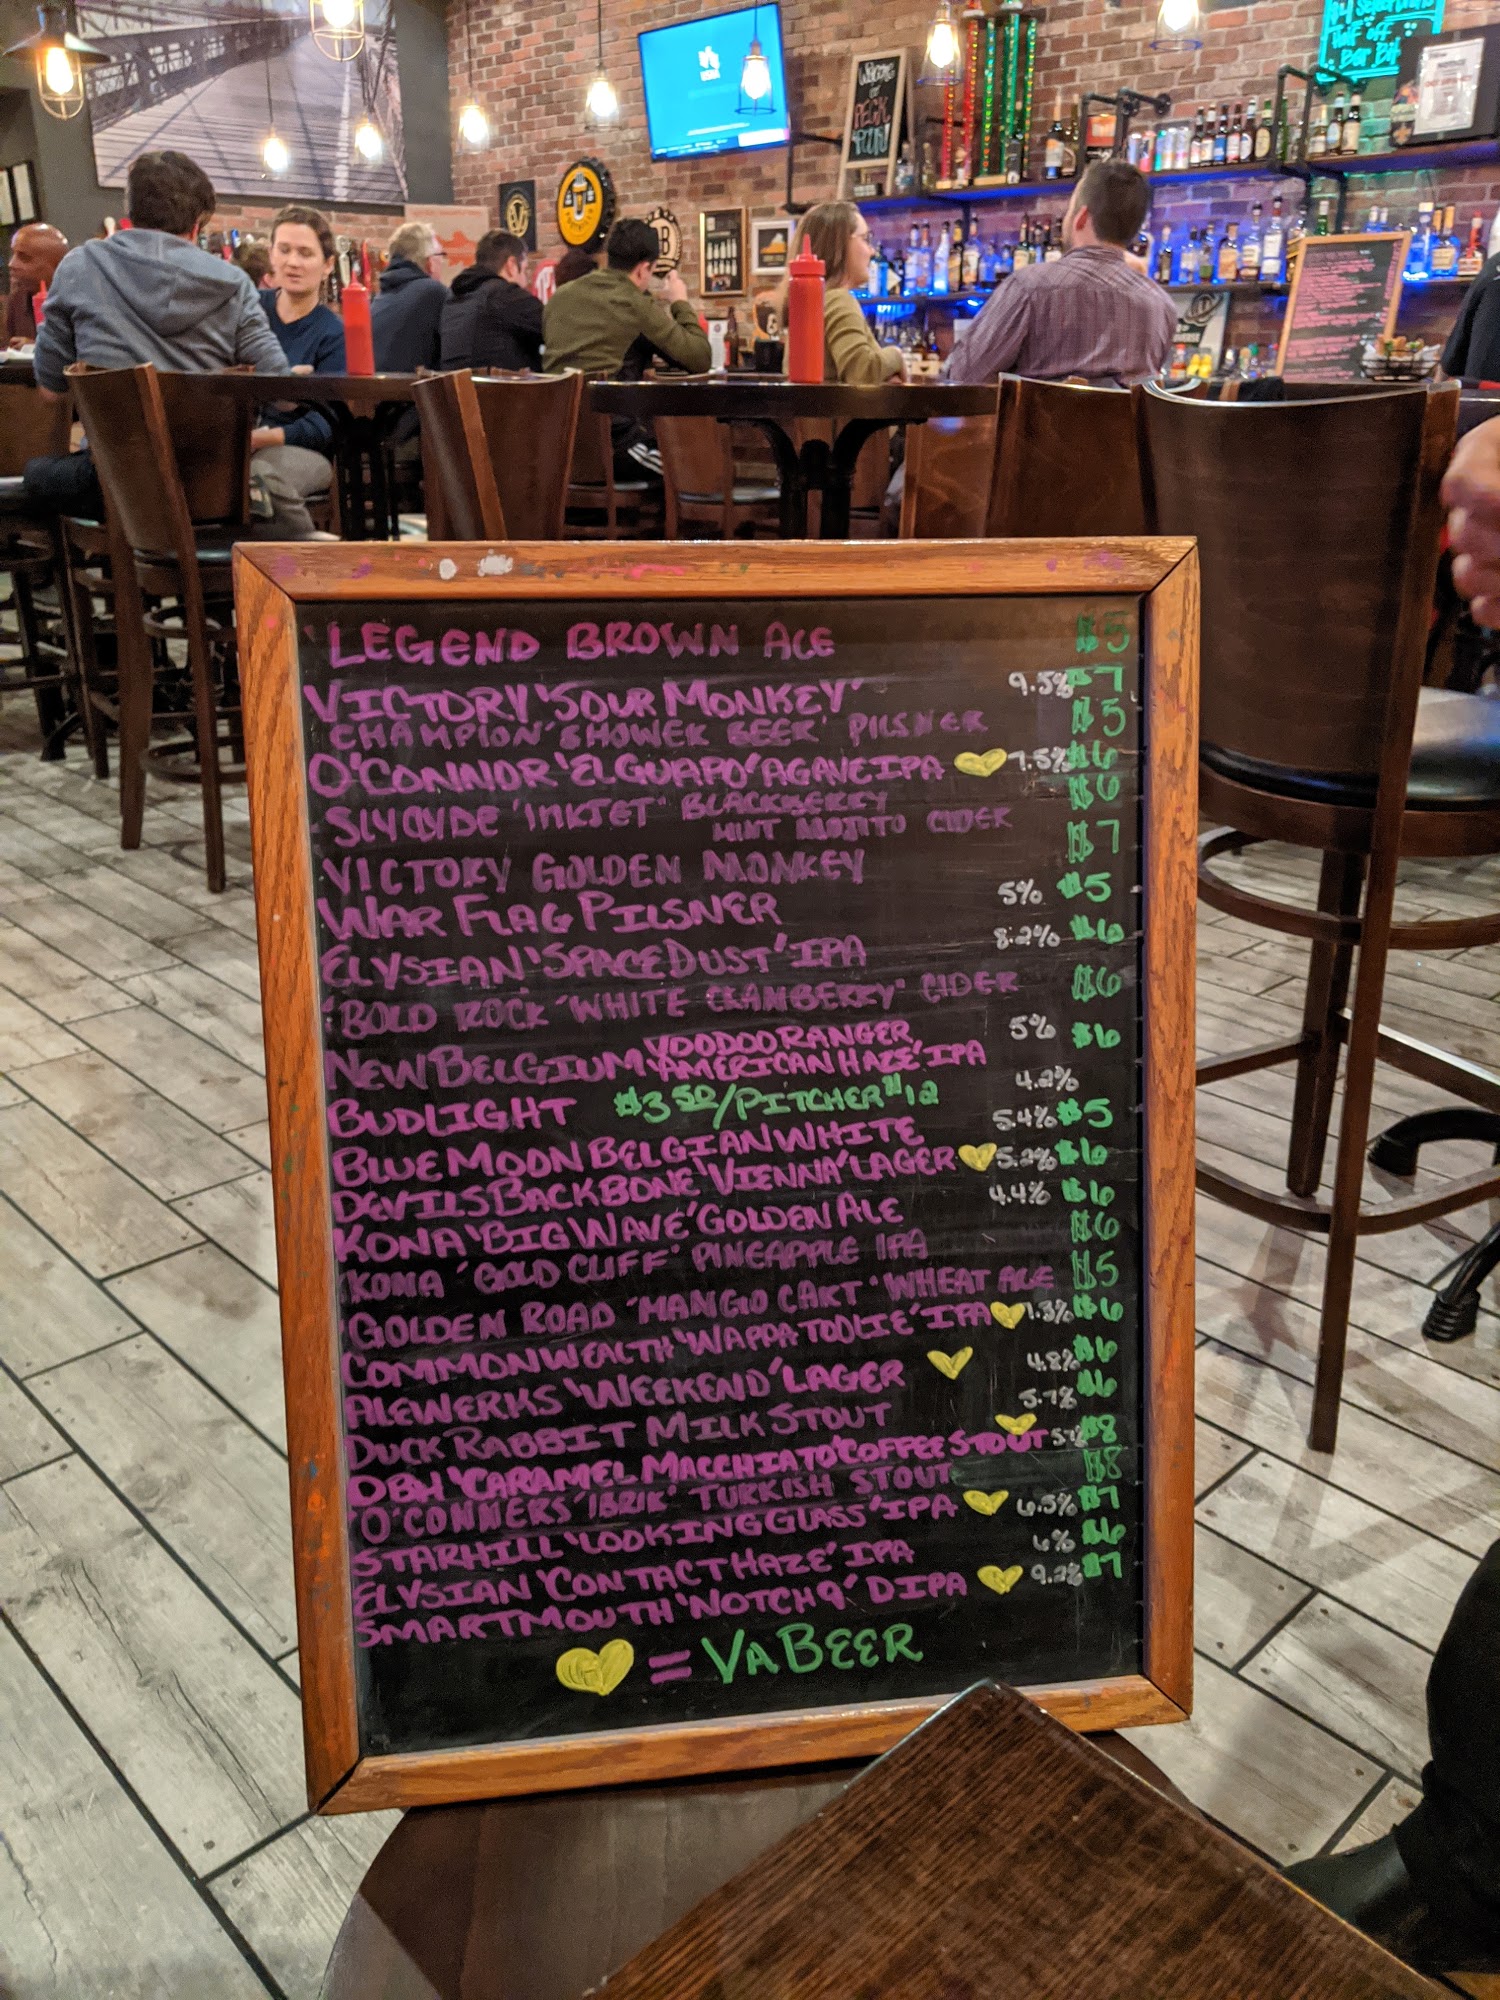 WELCOME
TO
PECK
PUN
Half off
LEGEND BROWN ALE $5
VICTORY 'SOUR MONKEY' 9.5% $7
CHAMPION 'SHOWER BEER' PILSNER $5
O'CONNOR 'EL GUAPO' AGAVE IPA 💛 7.5% $6
SLYCLYDE 'INKJET' BLACKBERRY $6
MINT MOJITO CIDER
VICTORY GOLDEN MONKEY $7
WAR FLAG PILSNER 5% $5
ELYSIAN 'SPACE DUST' IPA 8.2% $6
BOLD ROCK 'WHITE CRANBERRY' CIDER $6
NEW BELGIUM 'VOODOO RANGER
AMERICAN HAZE' IPA 5% $6
BUDLIGHT $3.50/PITCHER $12 4.2%
BLUE MOON BELGIAN WHITE 5.4% $5
DEVILS BACKBONE 'VIENNA' LAGER 💛 5.2% $6
KONA 'BIG WAVE' GOLDEN ALE 4.4% $6
KONA 'GOLD CLIFF' PINEAPPLE IPA $6
GOLDEN ROAD 'MANGO CART' WHEAT ALE $5
COMMONWEALTH 'WAPPATOOLIE' IPA 💛 7.3% $6
ALEWERKS 'WEEKEND' LAGER 💛 4.8% $6
DUCK RABBIT MILK STOUT 5.7% $6
DBH 'CARAMEL MACCHIATO' COFFEE STOUT 💛 $8
O'CONNERS 'IBRIK' TURKISH STOUT $8
STARHILL 'LOOKING GLASS' IPA 💛 6.5% $7
ELYSIAN 'CONTACT HAZE' IPA 6% $6
SMARTMOUTH 'NOTCH 9' DIPA 💛 9.2% $7
💛 = VA BEER